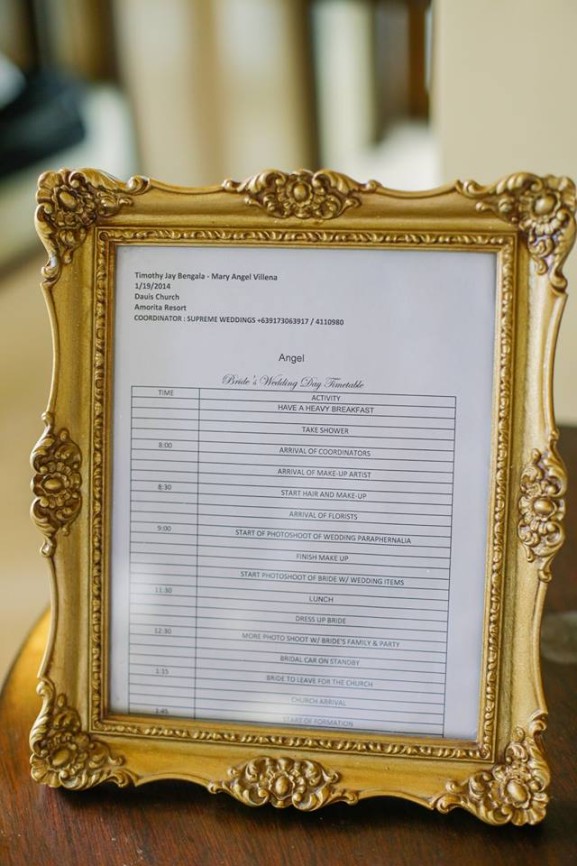 Timothy Jay Bengala - Mary Angel Villena
1/19/2014
Dauis Church
Amorita Resort
COORDINATOR : SUPREME WEDDINGS +639173063917 / 4110980
Angel
Bride's Wedding Day Timetable
TIME ACTIVITY
HAVE A HEAVY BREAKFAST
TAKE SHOWER
8:00 ARRIVAL OF COORDINATORS
ARRIVAL OF MAKE-UP ARTIST
8:30 START HAIR AND MAKE-UP
ARRIVAL OF FLORISTS
9:00 START OF PHOTOSHOOT OF WEDDING PARAPHERNALIA
FINISH MAKE UP
START PHOTOSHOOT OF BRIDE W/ WEDDING ITEMS
11:30 LUNCH
DRESS UP BRIDE
12:30 MORE PHOTO SHOOT W/ BRIDE'S FAMILY & PARTY
BRIDAL CAR ON STANDBY
1:15 BRIDE TO LEAVE FOR THE CHURCH
CHURCH ARRIVAL
1:45 START OF FORMATION